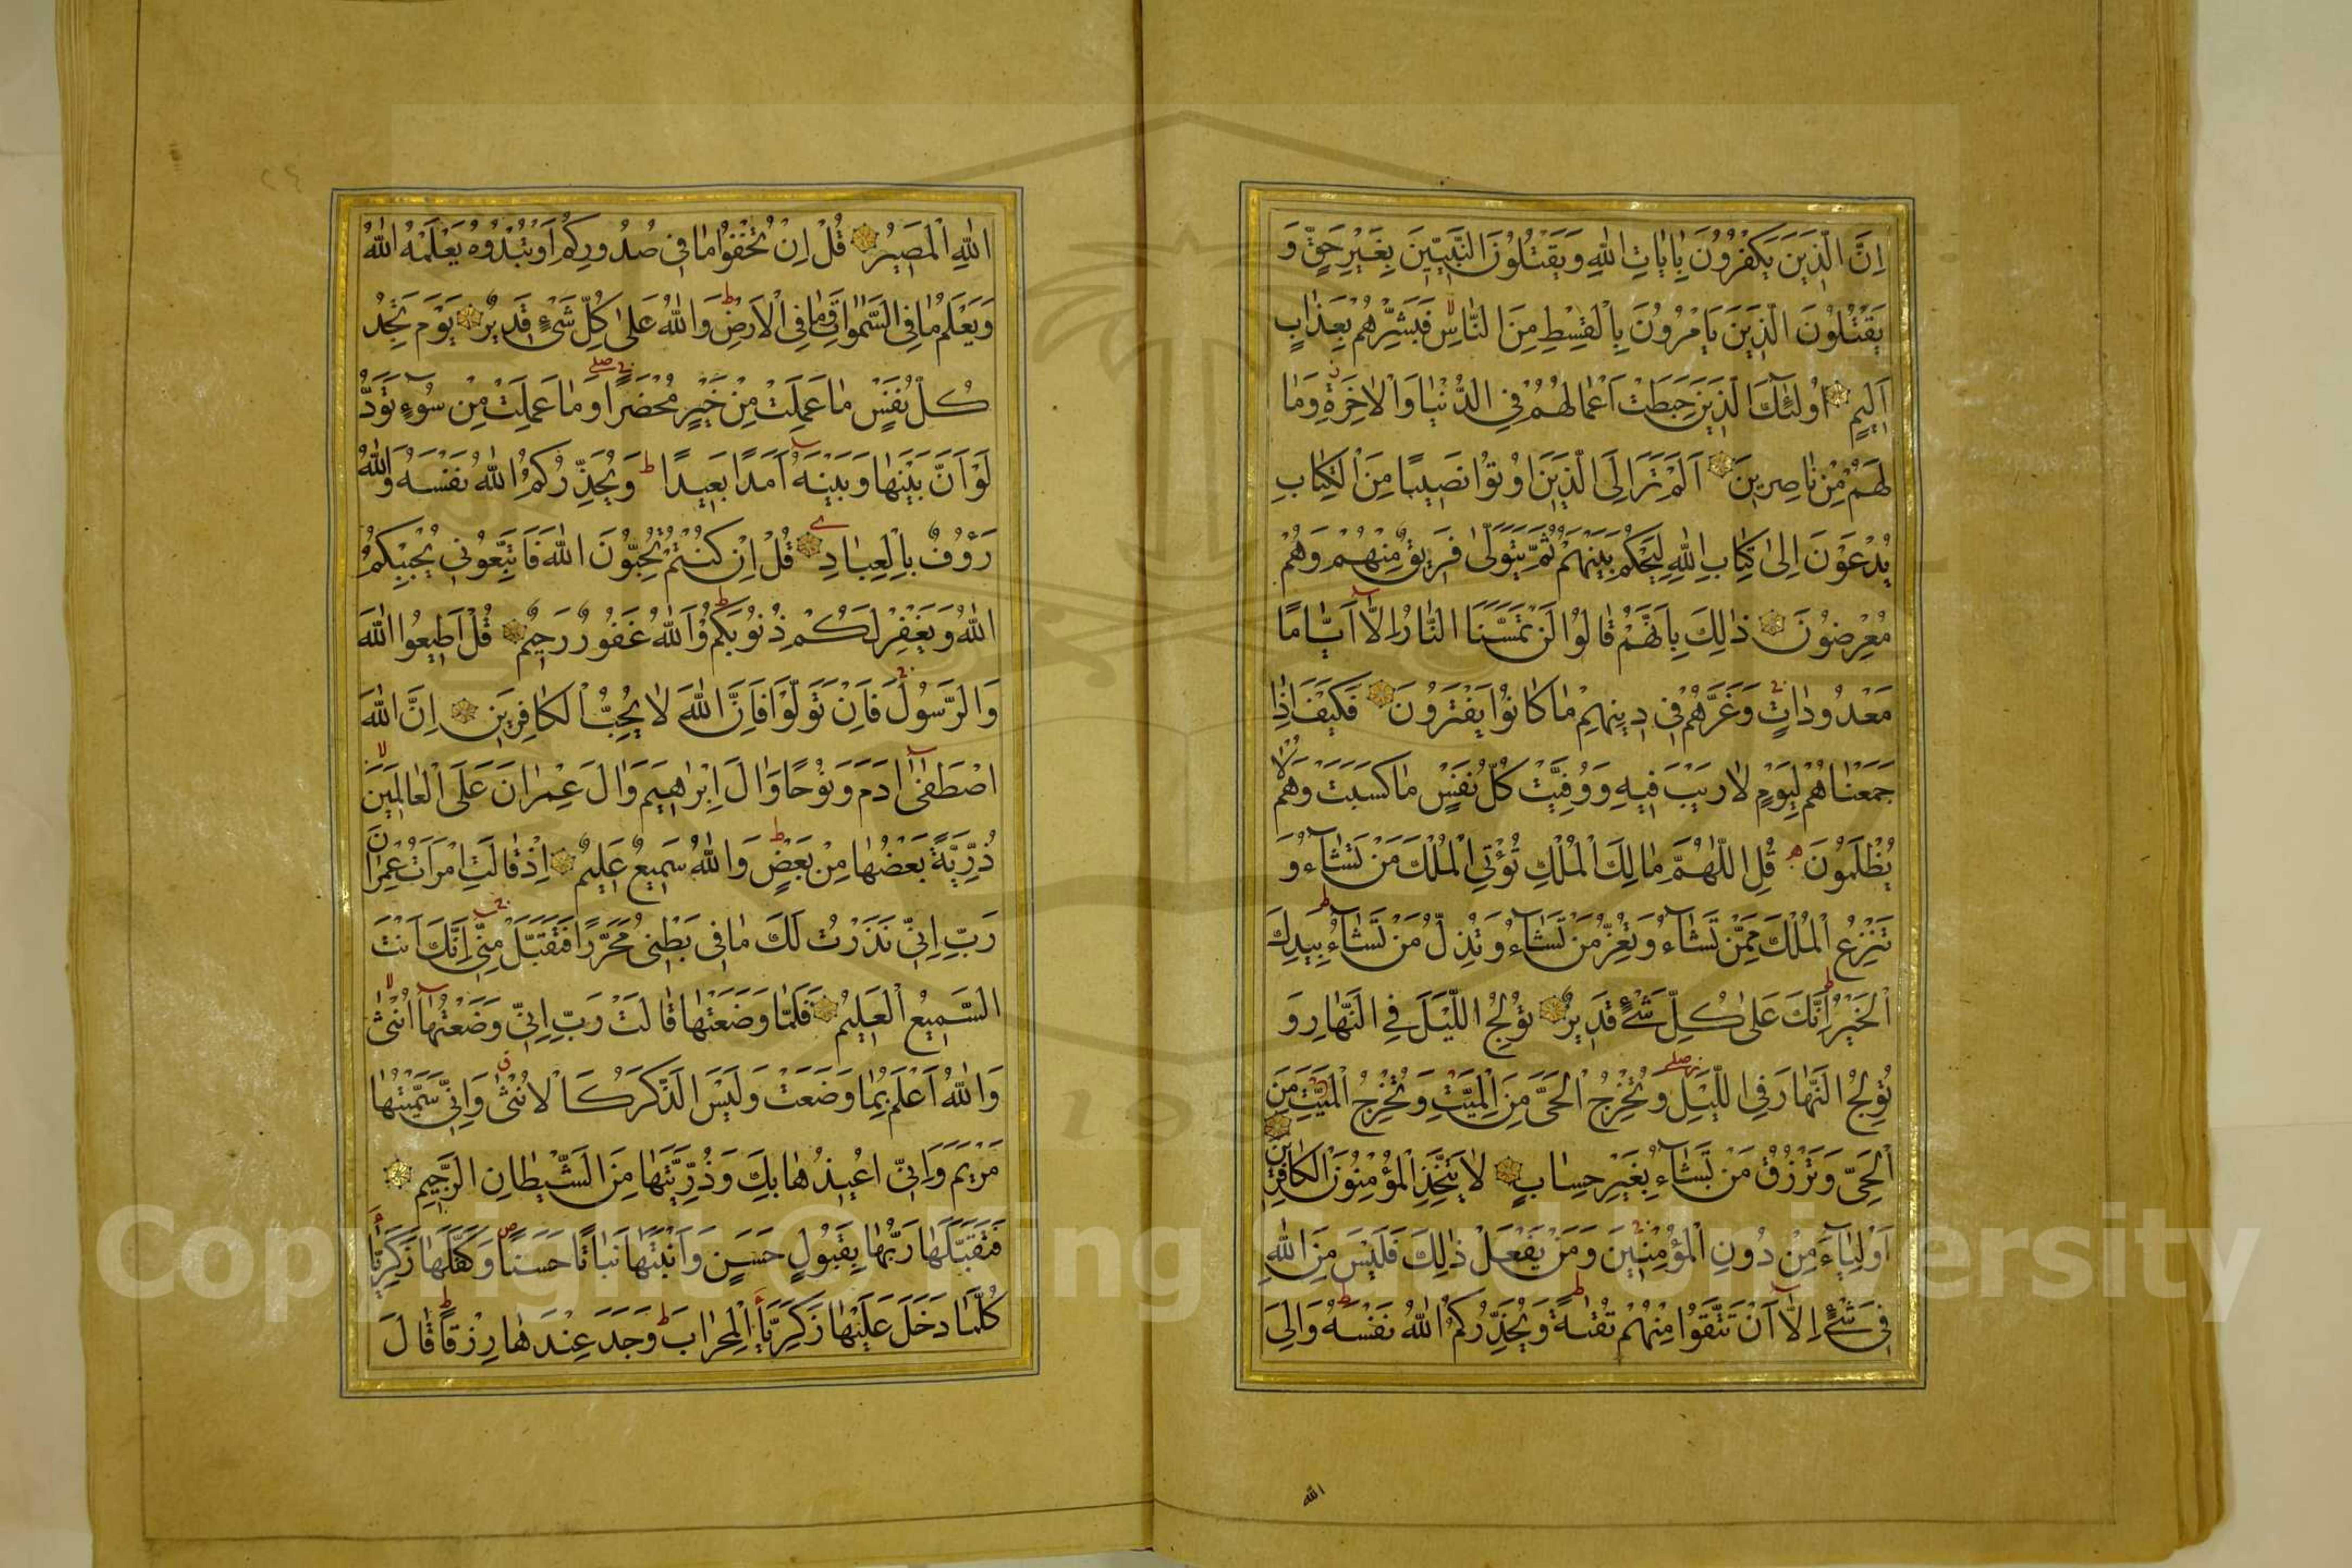 اِنَّ الَّذِينَ يَكْفُرُونَ بِاٰيَاتِ اللّٰهِ وَيَقْتُلُونَ النَّبِيّينَ بِغَيْرِ حَقٍّ وَ
يَقْتُلُونَ الَّذِينَ يَاْمُرُونَ بِالْقِسْطِ مِنَ النَّاسِ فَبَشِّرْهُمْ بِعَذَابٍ
اَلِيمٍ اُولٰئِكَ الَّذِينَ حَبِطَتْ اَعْمَالُهُمْ فِي الدُّنْيَا وَالْاٰخِرَةِ وَمَا
لَهُمْ مِنْ نَاصِرِينَ اَلَمْ تَرَ اِلَى الَّذِينَ اُوتُوا نَصِيبًا مِنَ الْكِتَابِ
يُدْعَوْنَ اِلٰى كِتَابِ اللّٰهِ لِيَحْكُمَ بَيْنَهُمْ ثُمَّ يَتَوَلّٰى فَرِيقٌ مِنْهُمْ وَهُمْ
مُعْرِضُونَ ذٰلِكَ بِاَنَّهُمْ قَالُوا لَنْ تَمَسَّنَا النَّارُ اِلَّا اَيَّامًا
مَعْدُودَاتٍ وَغَرَّهُمْ فِي دِينِهِمْ مَا كَانُوا يَفْتَرُونَ فَكَيْفَ اِذَا
جَمَعْنَاهُمْ لِيَوْمٍ لَا رَيْبَ فِيهِ وَوُفِّيَتْ كُلُّ نَفْسٍ مَا كَسَبَتْ وَهُمْ لَا
يُظْلَمُونَ قُلِ اللّٰهُمَّ مَالِكَ الْمُلْكِ تُؤْتِي الْمُلْكَ مَنْ تَشَاءُ وَ
تَنْزِعُ الْمُلْكَ مِمَّنْ تَشَاءُ وَتُعِزُّ مَنْ تَشَاءُ وَتُذِلُّ مَنْ تَشَاءُ بِيَدِكَ
الْخَيْرُ اِنَّكَ عَلٰى كُلِّ شَيْءٍ قَدِيرٌ تُولِجُ اللَّيْلَ فِي النَّهَارِ وَ
تُولِجُ النَّهَارَ فِي اللَّيْلِ وَتُخْرِجُ الْحَيَّ مِنَ الْمَيِّتِ وَتُخْرِجُ الْمَيِّتَ مِنَ
الْحَيِّ وَتَرْزُقُ مَنْ تَشَاءُ بِغَيْرِ حِسَابٍ لَا يَتَّخِذِ الْمُؤْمِنُونَ الْكَافِرِينَ
اَوْلِيَاءَ مِنْ دُونِ الْمُؤْمِنِينَ وَمَنْ يَفْعَلْ ذٰلِكَ فَلَيْسَ مِنَ اللّٰهِ
فِي شَيْءٍ اِلَّا اَنْ تَتَّقُوا مِنْهُمْ تُقٰيةً وَيُحَذِّرُكُمُ اللّٰهُ نَفْسَهُ وَاِلَى
الله
اللّٰهِ الْمَصِيرُ قُلْ اِنْ تُخْفُوا مَا فِي صُدُورِكُمْ اَوْ تُبْدُوهُ يَعْلَمْهُ اللّٰهُ
وَيَعْلَمُ مَا فِي السَّمٰوَاتِ وَمَا فِي الْاَرْضِ وَاللّٰهُ عَلٰى كُلِّ شَيْءٍ قَدِيرٌ يَوْمَ تَجِدُ
كُلُّ نَفْسٍ مَا عَمِلَتْ مِنْ خَيْرٍ مُحْضَرًا وَمَا عَمِلَتْ مِنْ سُوءٍ تَوَدُّ
لَوْ اَنَّ بَيْنَهَا وَبَيْنَهُ اَمَدًا بَعِيدًا وَيُحَذِّرُكُمُ اللّٰهُ نَفْسَهُ وَاللّٰهُ
رَؤُفٌ بِالْعِبَادِ قُلْ اِنْ كُنْتُمْ تُحِبُّونَ اللّٰهَ فَاتَّبِعُونِي يُحْبِبْكُمُ
اللّٰهُ وَيَغْفِرْ لَكُمْ ذُنُوبَكُمْ وَاللّٰهُ غَفُورٌ رَحِيمٌ قُلْ اَطِيعُوا اللّٰهَ
وَالرَّسُولَ فَاِنْ تَوَلَّوْا فَاِنَّ اللّٰهَ لَا يُحِبُّ الْكَافِرِينَ اِنَّ اللّٰهَ
اصْطَفٰى اٰدَمَ وَنُوحًا وَاٰلَ اِبْرٰهِيمَ وَاٰلَ عِمْرٰانَ عَلَى الْعَالَمِينَ
ذُرِّيَّةً بَعْضُهَا مِنْ بَعْضٍ وَاللّٰهُ سَمِيعٌ عَلِيمٌ اِذْ قَالَتِ امْرَاَتُ عِمْرٰانَ
رَبِّ اِنِّي نَذَرْتُ لَكَ مَا فِي بَطْنِي مُحَرَّرًا فَتَقَبَّلْ مِنِّي اِنَّكَ اَنْتَ
السَّمِيعُ الْعَلِيمُ فَلَمَّا وَضَعَتْهَا قَالَتْ رَبِّ اِنِّي وَضَعْتُهَا اُنْثٰى
وَاللّٰهُ اَعْلَمُ بِمَا وَضَعَتْ وَلَيْسَ الذَّكَرُ كَالْاُنْثٰى وَاِنِّي سَمَّيْتُهَا
مَرْيَمَ وَاِنِّي اُعِيذُهَا بِكَ وَذُرِّيَّتَهَا مِنَ الشَّيْطَانِ الرَّجِيمِ
فَتَقَبَّلَهَا رَبُّهَا بِقَبُولٍ حَسَنٍ وَاَنْبَتَهَا نَبَاتًا حَسَنًا وَكَفَّلَهَا زَكَرِيَّا
كُلَّمَا دَخَلَ عَلَيْهَا زَكَرِيَّا الْمِحْرَابَ وَجَدَ عِنْدَهَا رِزْقًا قَالَ
Copyright © King Saud University
1957